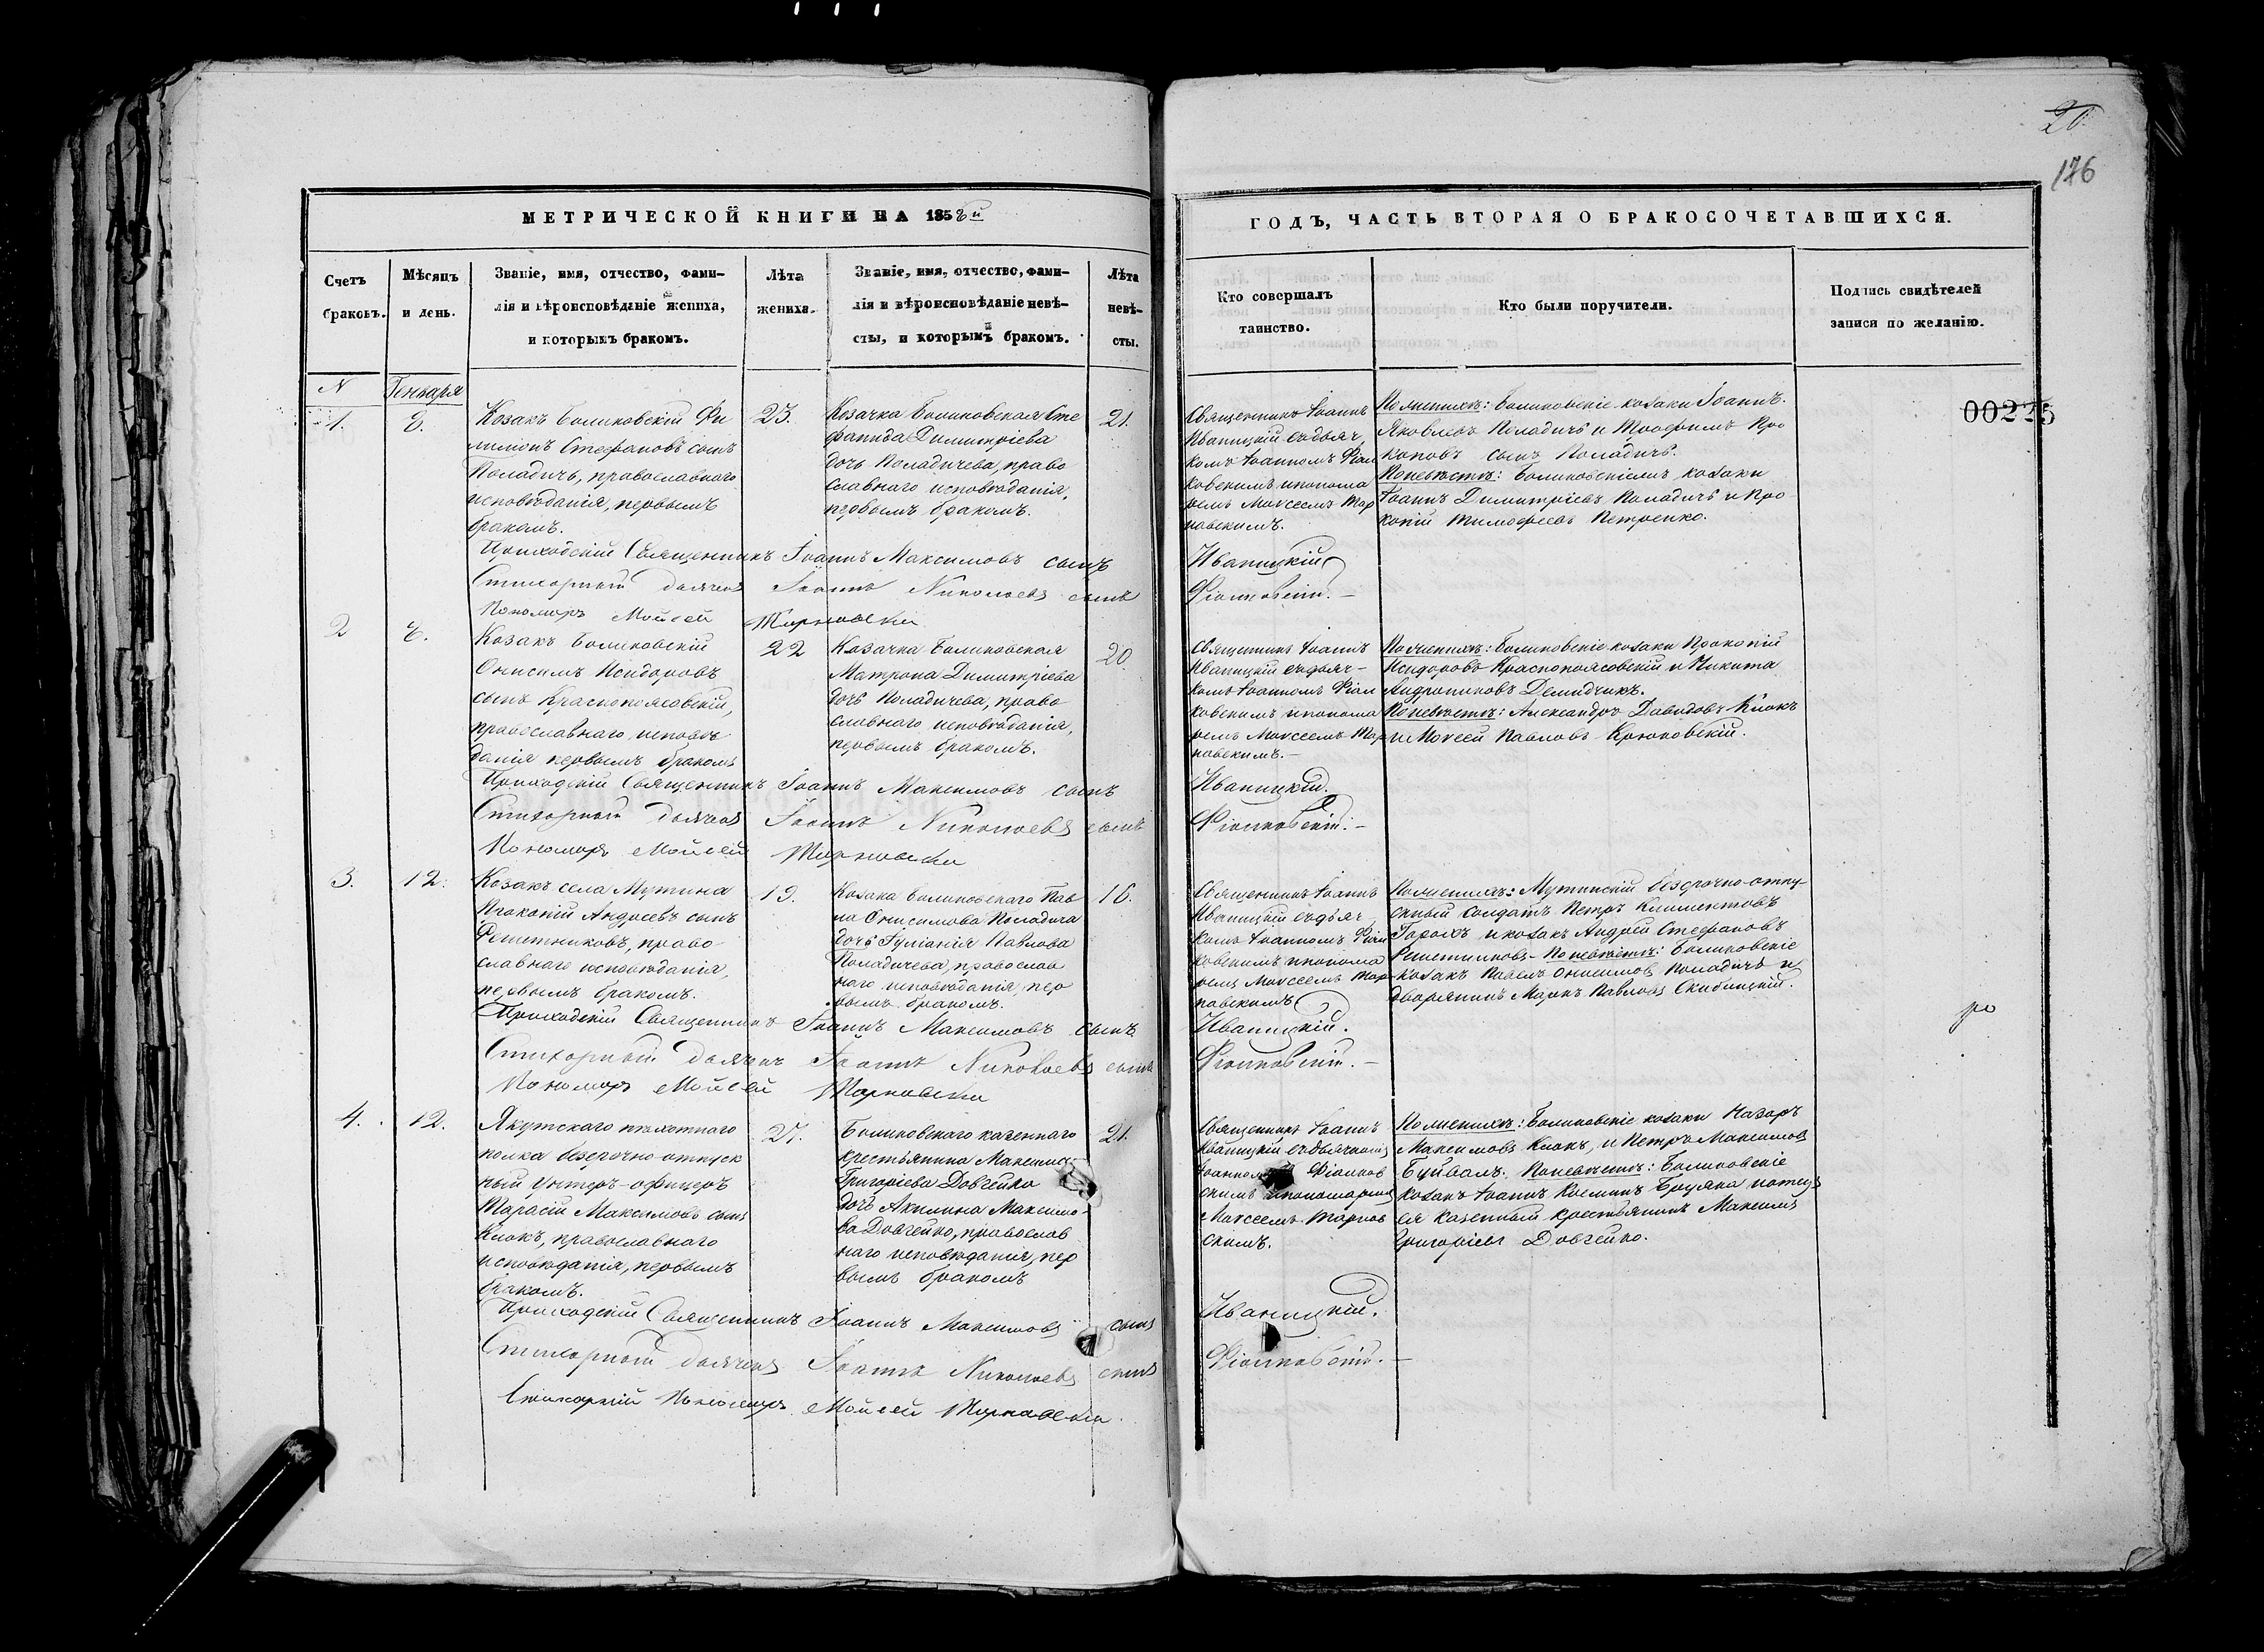 20
176
МЕТРИЧЕСКОЙ КНИГИ НА 1858й
ГОДЪ, ЧАСТЬ ВТОРАЯ О БРАКОСОЧЕТАВШИХСЯ.
Счетъ
браковъ.
Мѣсяцъ
и день.
Званіе, имя, отчество, фами-
лія и вѣроисповѣданіе жениха,
и которымъ бракомъ.
Лѣта
жениха.
Званіе, имя, отчество, фами-
лія и вѣроисповѣданіе невѣ-
сты, и которымъ бракомъ.
Лѣта
невѣ-
сты.
Кто совершалъ
таинство.
Кто были поручители.
Подпись свидѣтелей
записи по желанію.
N
Генваря
00225
1.
8.
Козакъ Боликовскій Фи
лимонъ Стефановъ сынъ
Поладичъ, православнаго
исповѣданія, первымъ
бракомъ.
23.
Козачка Боликовская Сте
фанида Димитріева
дочь Поладичева, право
славнаго исповѣданія,
первымъ бракомъ.
21.
Священникъ Іоаннъ
Иваницкій съ дьяч
комъ Іоанномъ Фіал
ковскимъ и понома
ремъ Моисеемъ Тар
навскимъ.
По женихѣ: Боликовскіе козаки Іоаннъ
Яковлевъ Поладичъ и Трофимъ Про
коповъ сынъ Поладичъ.
По невѣстѣ: Боликовскіемъ козаки
Іоаннъ Димитріевъ Поладичъ и Про
копій Тимофеевъ Петренко.
Приходскій Священникъ Іоаннъ Максимовъ сынъ Иваницкій
Стихарный дьячокъ Іоаннъ Николаевъ сынъ Фіалковскій.
Пономарь Мойсей Тарновски
2
8.
Козакъ Боликовскій
Онисимъ Исидоровъ
сынъ Краснополсовскій,
православнаго исповѣ
данія первымъ бракомъ
22
Козачка Боликовская
Матрона Димитріева
дочь Поладичева, право
славнаго исповѣданія,
первымъ бракомъ.
20.
Священникъ Іоаннъ
Иваницкій съ дьяч-
комъ Іоанномъ Фіал
ковскимъ и понома
ремъ Моисеемъ Тар
навскимъ.
По женихѣ: Боликовскіе козаки Прокопій
Исидоровъ Краснополсовскій и Никита
Андрониковъ Демидчикъ.
По невѣстѣ: Александръ Давидовъ Клокъ
и Моисей Павловъ Крюковскій.
Приходскій Священникъ Іоаннъ Максимовъ сынъ Иваницкій.
Стихарный дьячокъ Іоаннъ Николаевъ сынъ Фіалковскій.
Пономарь Мойсей Тарновски
3.
12.
Козакъ села Мутина
Прокопій Андреевъ сынъ
Решетниковъ, право
славнаго исповѣданія,
первымъ бракомъ.
19.
Козака Боликовскаго Пав
ла Онисимова Поладича
дочь Гуліанія Павлова
Поладичева, православ
наго исповѣданія, пер
вымъ бракомъ.
16.
Священникъ Іоаннъ
Иваницкій съ дьяч
комъ Іоанномъ Фіал
ковскимъ и понома
ремъ Моисеемъ Тар
навскимъ
По женихѣ: Мутинскій безсрочно-отпу-
скный солдатъ Петръ Климентовъ
Горохъ и козакъ Андрей Стефановъ
Решетниковъ. По невѣстѣ: Боликовскіе
козакъ Павелъ Онисимовъ Поладичъ и
дворянинъ Маркъ Павловъ Скибицкій.
Приходскій Священникъ Іоаннъ Максимовъ сынъ Иваницкій.
Стихарный дьячокъ Іоаннъ Николаевъ сынъ Фіалковскій.
Пономарь Мойсей Тарновски
4.
12.
Якутскаго пѣхотнаго
полка безсрочно-отпуск
ный унтеръ-офицеръ
Тарасій Максимовъ сынъ
Клокъ, православнаго
исповѣданія, первымъ
бракомъ.
27.
Боликовскаго казеннаго
крестьянина Максима
Григоріева Довгейко
дочь Акилина Максимо-
ва Довгейко, православ
наго исповѣданія, пер
вымъ бракомъ
21.
Священникъ Іоаннъ
Иваницкій съ дьячкомъ
Іоанномъ Фіалков
скимъ и пономаремъ
Моисеемъ Тарнов
скимъ.
По женихѣ: Боликовскіе козаки Назаръ
Максимовъ Клокъ, и Петръ Максимовъ
Буйвалъ. По невѣстѣ: Боликовскіе
козакъ Іоаннъ Косминъ Бруяка
казенный крестьянинъ Максимъ
Григоріевъ Довгейко.
Приходскій Священникъ Іоаннъ Максимовъ сынъ Иваницкій.
Стихарный дьячокъ Іоаннъ Николаевъ сынъ Фіалковскій.
Стихарній Пономарь Мойсей Тарновски.